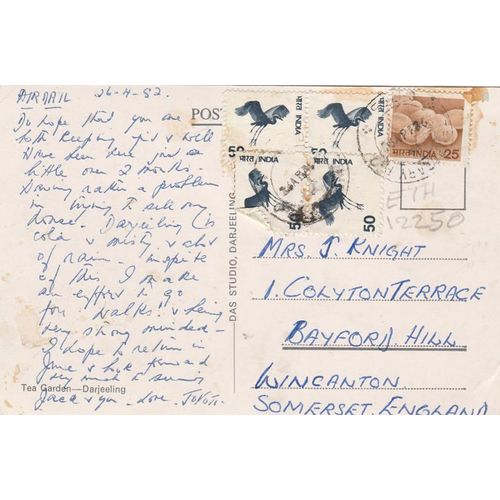 AIRMAIL 26-4-82.
Do hope that you are
both keeping fit & well
Have been here just a
little over 2 months.
Having rather a problem
in trying to sell my
house. Darjeeling is
cold & misty & lots
of rain. Inspite
of this I make
an effort to go
for walks & being
very strong minded-
I hope to return in
June & look forward
very much to seeing
Jack & you. Love
Tea Garden—Darjeeling
DAS STUDIO, DARJEELING
POST
भारत INDIA
50
भारत INDIA
50
भारत INDIA
50
भारत INDIA
50
भारत INDIA 25
ETH
12250
MRS. J. KNIGHT
1. COLYTON TERRACE
BAYFORD HILL
WINCANTON
SOMERSET. ENGLAND